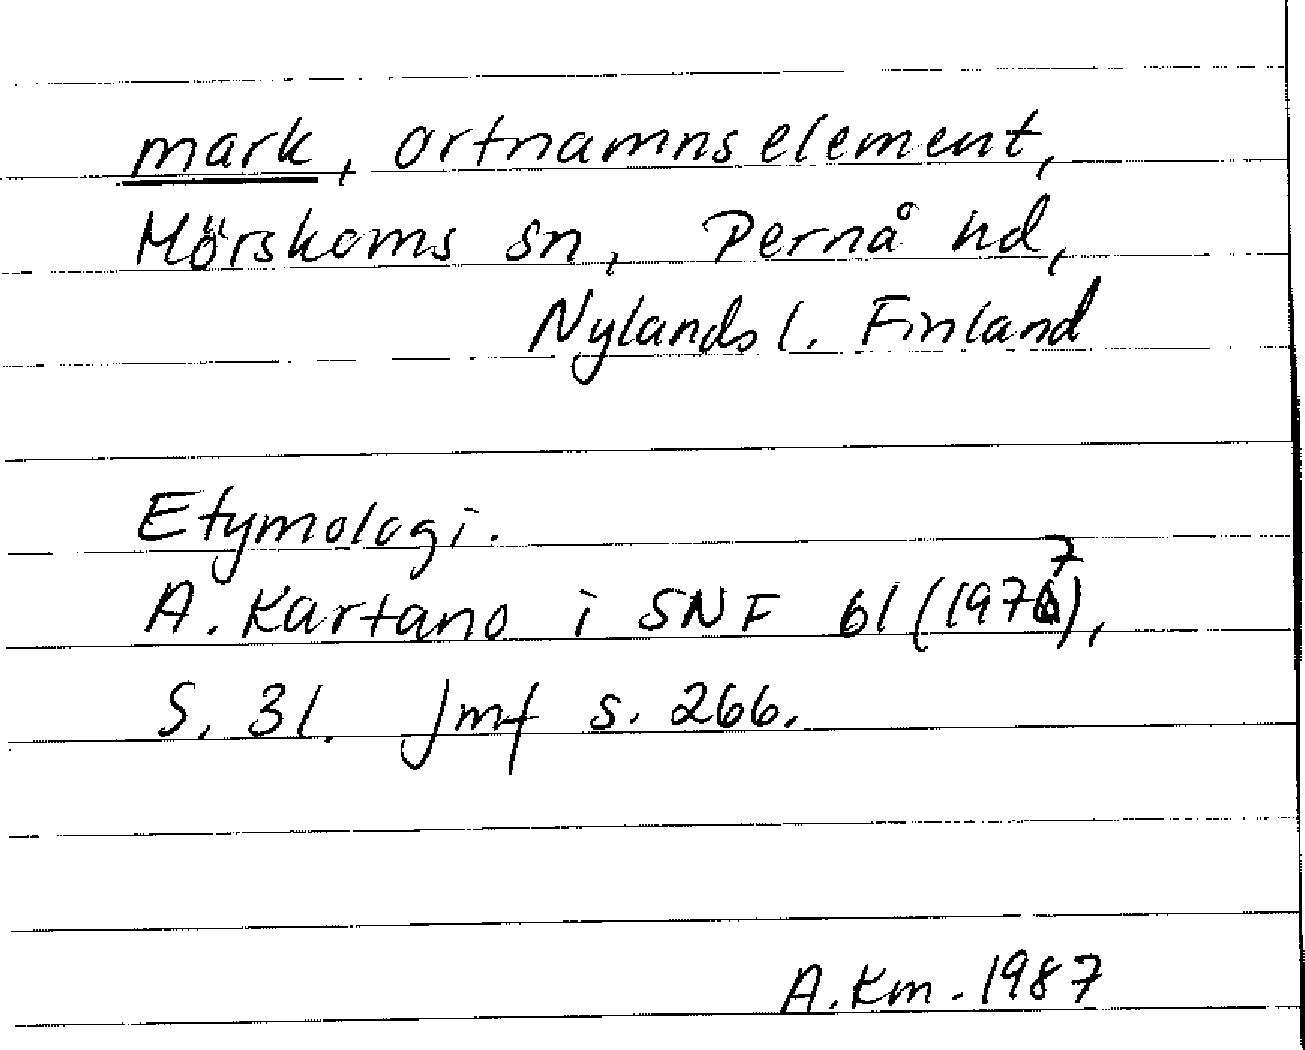 mark, ortnamnselement,
Mörskoms sn, Pernå hd,
Nylands l. Finland
Etymologi.
A. Kartano i SNF 61 (1977),
S. 31. Jmf s. 266.
A. Km. 1987